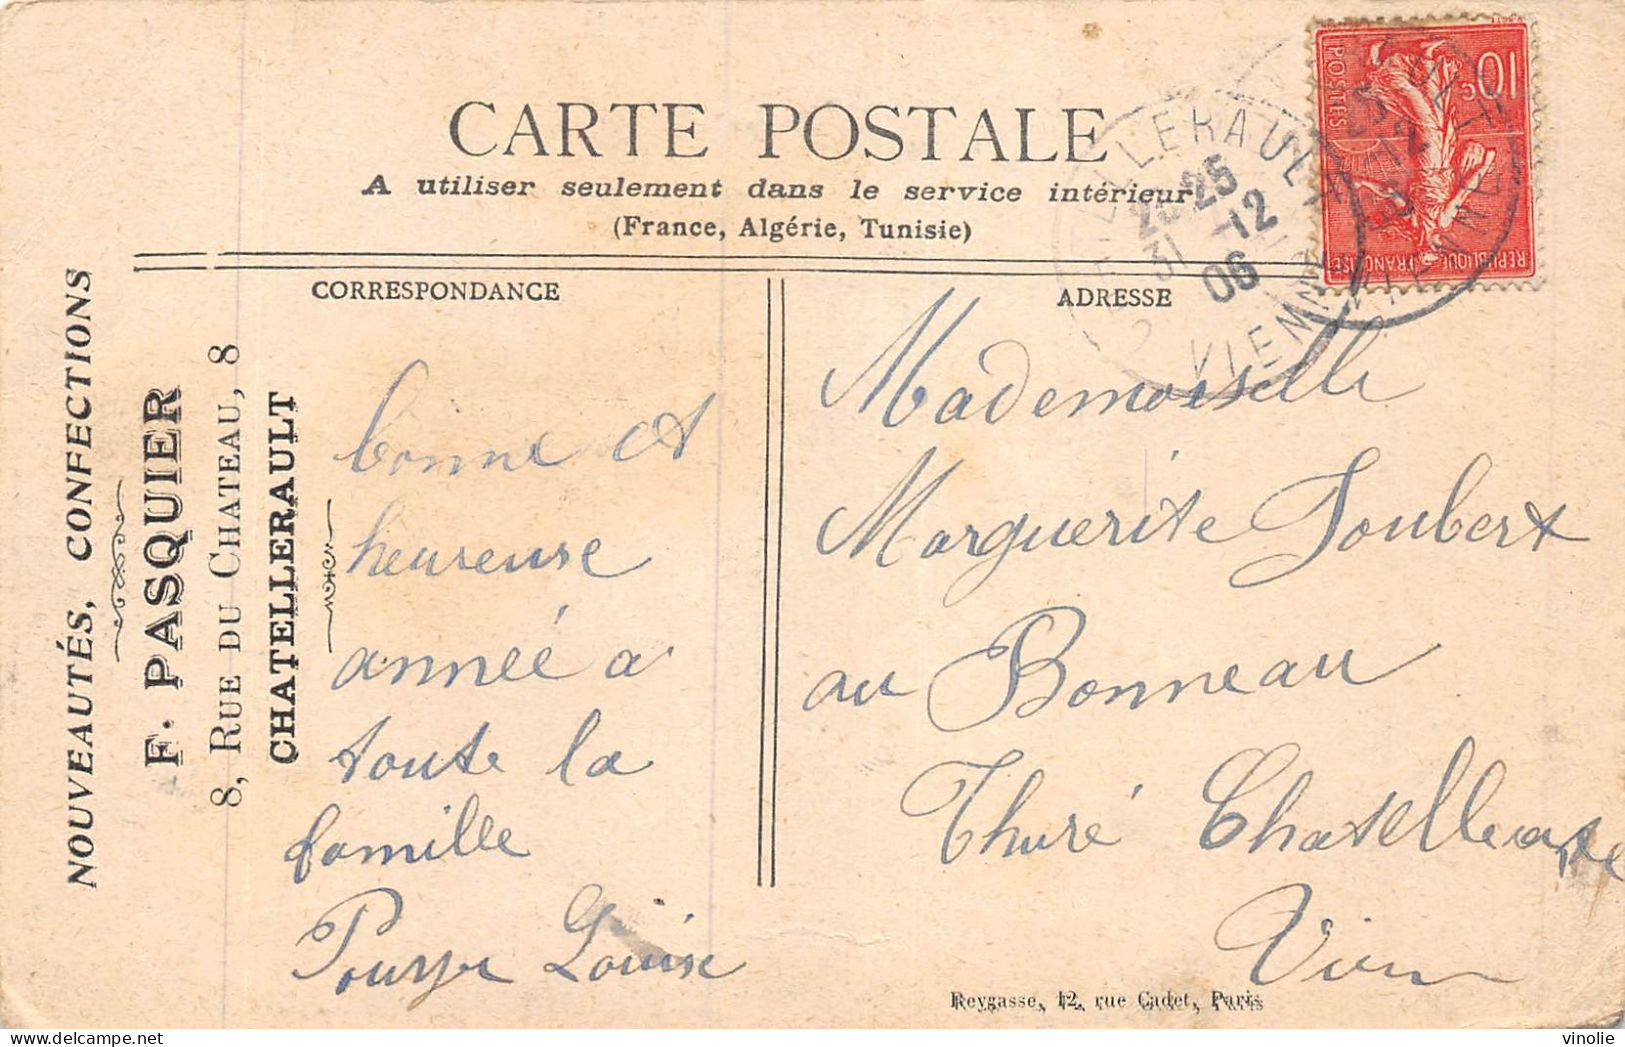 CARTE POSTALE
A utiliser seulement dans le service intérieur
(France, Algérie, Tunisie)
CORRESPONDANCE
ADRESSE
NOUVEAUTÉS, CONFECTIONS
F. PASQUIER
8, RUE DU CHATEAU, 8
CHATELLERAULT
bonne et
heureuse
année a
toute la
famille
Louise
Mademoiselle
Marguerite Joubert
au Bonneau
Thuré
Reygasse, 12, rue Cadet, Paris
10c
POSTES
REPUBLIQUE FRANÇAISE
25
12
06
VIENNE
vinolie